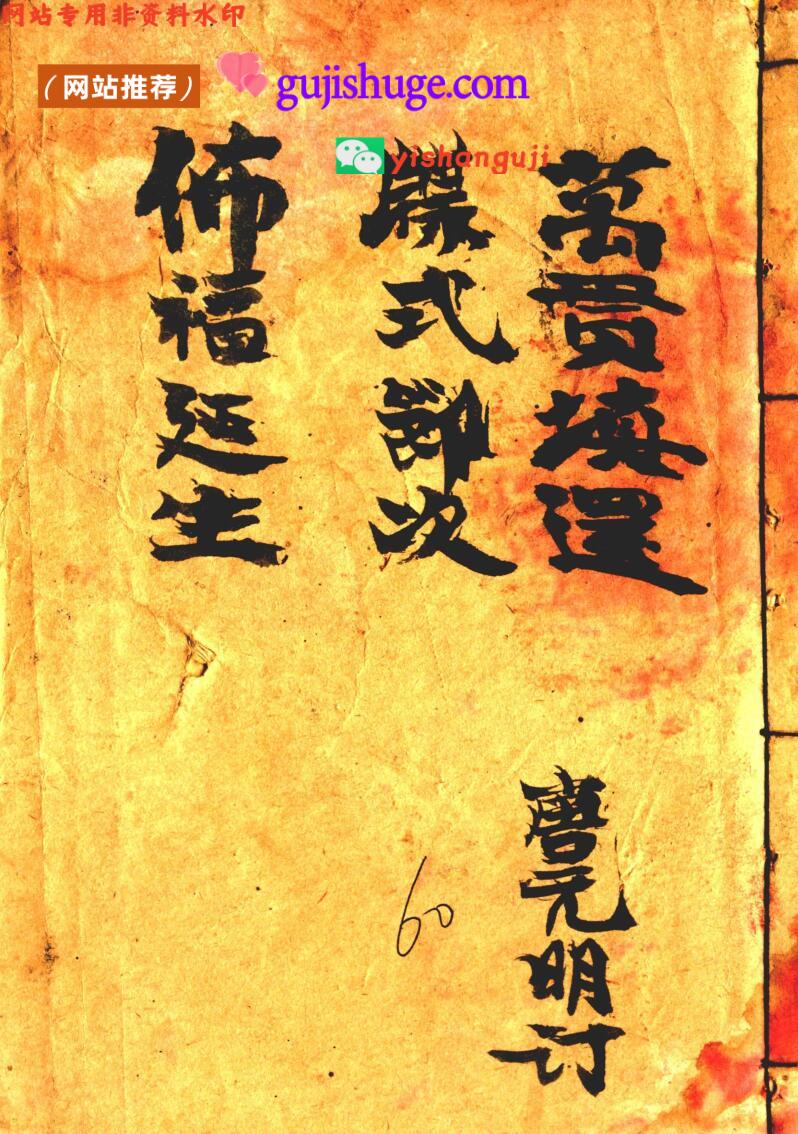 网站专用非资料水印
（网站推荐） gujishuge.com
yishanguji
萬貫填還
牒式鄧次
佈福延生
唐元明订
60